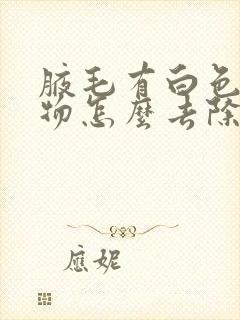 腋毛有白色
物怎麼去除
應妮